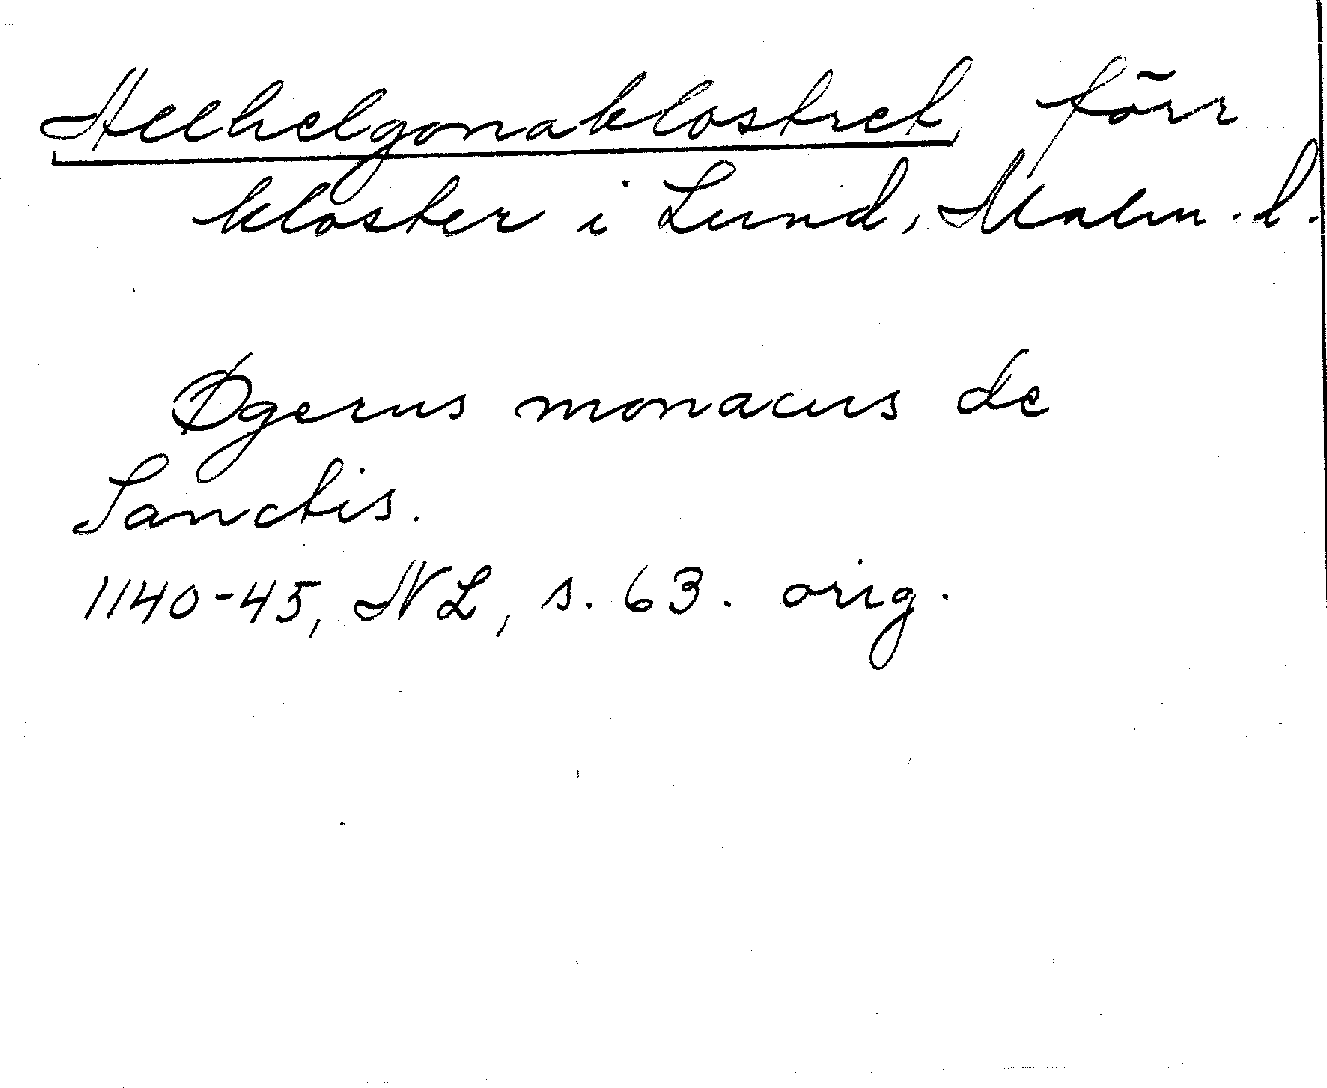 Allhelgonaklostret, förr
kloster i Lund, Malm. l.
Øgerus monacus de
Sanctis.
1140-45, NL, s. 63. orig.